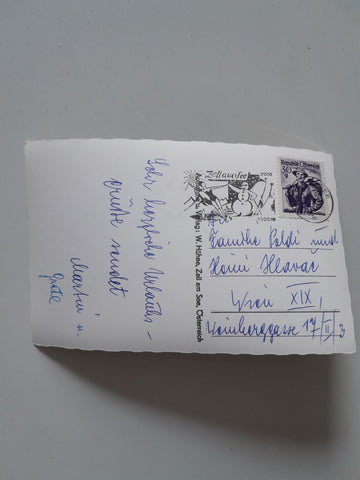 Sehr herzliche Urlaubs-
grüße sendet
Martin u.
Grete
Zell am See
2000
Verlag: W. Hühne, Zell am See, Österreich
Republik Österreich
30
Familie Poldi und
Heini Hlavac
Wien XIX,
Weinberggasse 17/II/3